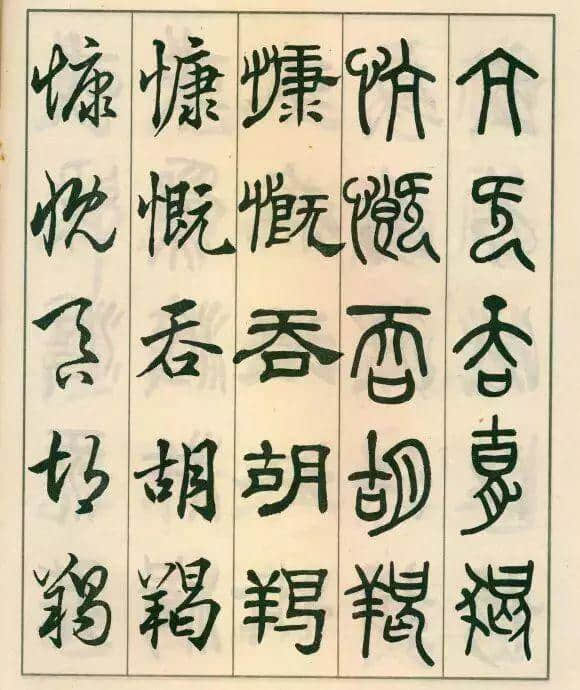 慷慨吞胡羯
慷慨吞胡羯
慷慨吞胡羯
慷慨吞胡羯
慷慨吞胡羯